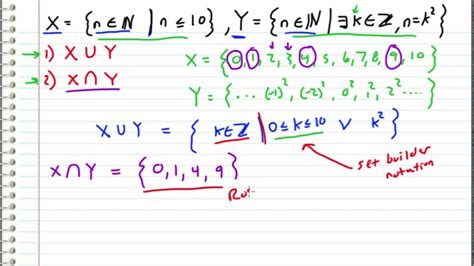 X = {n∈ℕ | n≤10}, Y = {n∈ℕ | ∃k∈ℤ, n=k²}
1) X∪Y X = {0,1,2,3,4,5,6,7,8,9,10}
2) X∩Y Y = {... (-1)², (-2)², 0², 1², 2² ....}
X∪Y = {k∈ℤ | 0≤k≤10 ∨ k²}
set builder
notation
X∩Y = {0,1,4,9}
Ro